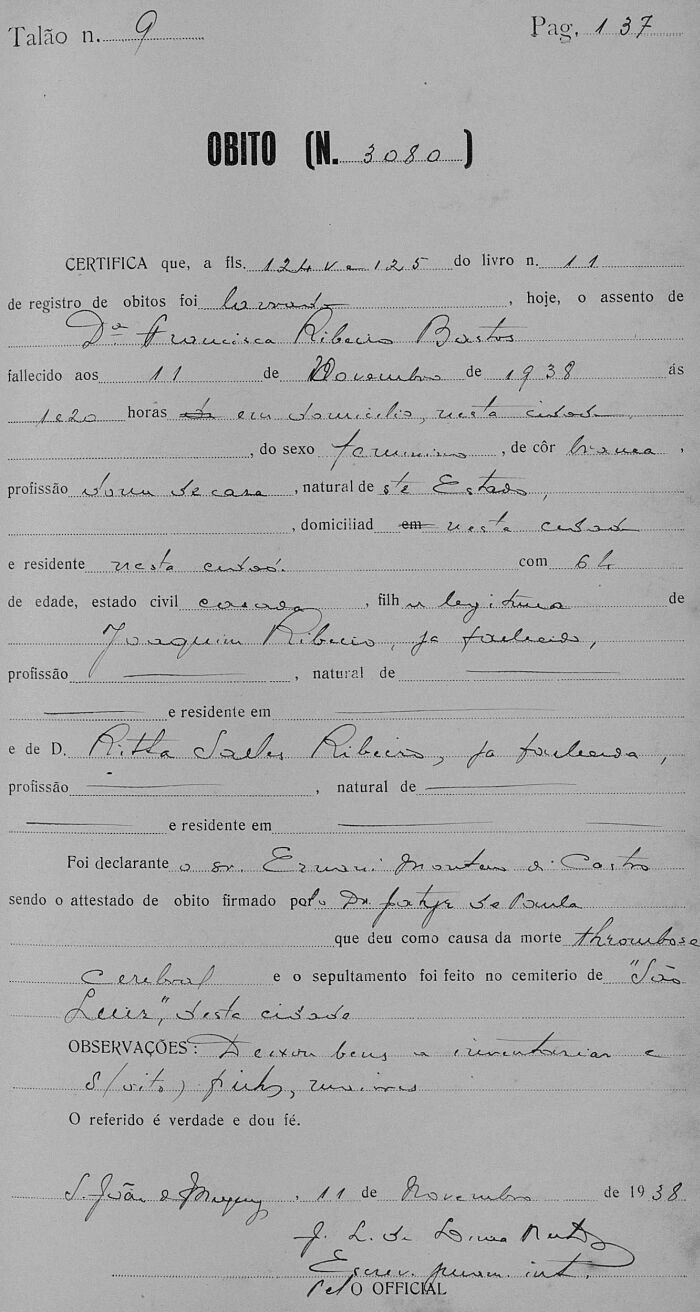 Talão n. 9 Pag. 137
OBITO (N. 3080)
CERTIFICA que, a fls. 124 v e 125 do livro n. 11
de registro de obitos foi lavrado, hoje, o assento de
Dª Francisca Ribeiro Bastos
fallecido aos 11 de Novembro de 1938 ás
1e20 horas em domicilio, nesta cidade
, do sexo feminino, de côr branca,
profissão dona de casa, natural deste Estado,
, domiciliad em nesta cidade
e residente nesta cidade. com 64
de edade, estado civil casada, filha legitima de
Joaquim Ribeiro, ja fallecido,
profissão , natural de
e residente em
e de D. Ritta Salles Ribeiro, ja fallecida,
profissão , natural de
e residente em
Foi declarante o sr. Ernani Monteiro de Castro
sendo o attestado de obito firmado pelo Dr. de Paula
que deu como causa da morte thrombose
cerebral e o sepultamento foi feito no cemiterio de "São
Luiz", desta cidade
OBSERVAÇÕES: Deixou bens a inventariar e
8/oito) filhos, maiores
O referido é verdade e dou fé.
S. João de , 11 de Novembro de 1938
J. L. de
Escrev. juram. int.
pelO OFFICIAL